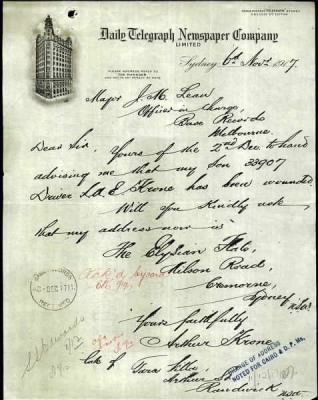 Daily Telegraph Newspaper Company
LIMITED
Sydney, 6th Novr 1917.
PLEASE ADDRESS REPLY TO
THE MANAGER
Major J. M. Lean
Officer in Charge,
Base Records
Melbourne.
Dear Sir. Yours of the 2nd Dec. to hand
advising me that my Son 33907
Driver L A E Krone has been wounded.
Will you Kindly note
that my address now is
The Elysean Flats,
Milson Road,
Cremorne,
Sydney
Yours faithfully
Arthur Krone
late of
Arthur St
Randwick
CHANGE OF ADDRESS
NOTED FOR CAIRO & D.P. Ms.